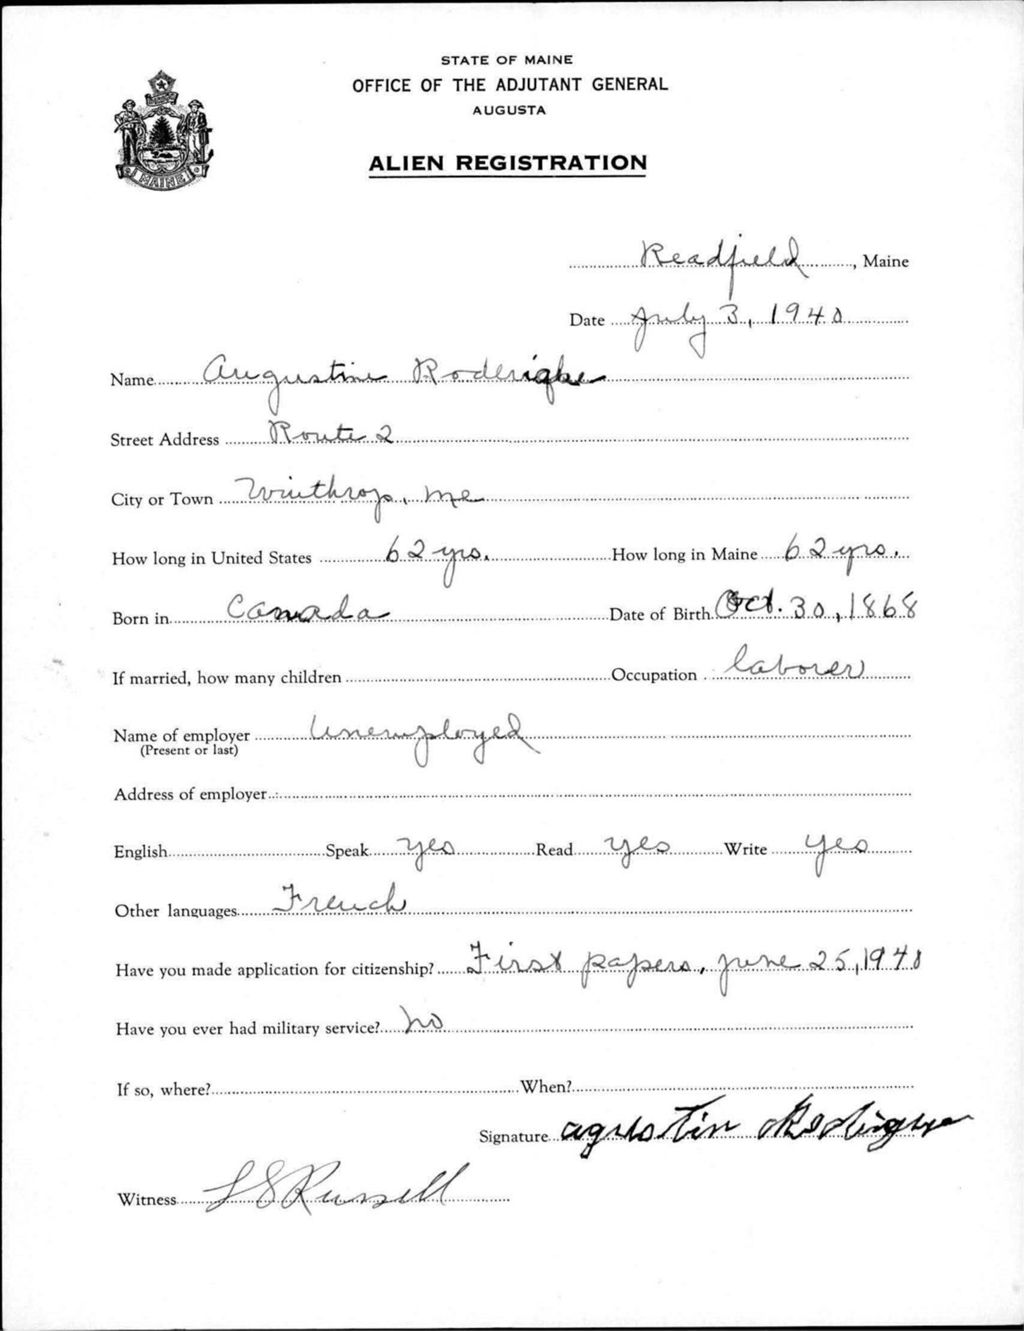 STATE OF MAINE
OFFICE OF THE ADJUTANT GENERAL
AUGUSTA
ALIEN REGISTRATION
MAINE
Readfield, Maine
Date July 3, 1940
Name Augustine
Street Address Route 2
City or Town Winthrop, Me
How long in United States 62 yrs. How long in Maine 62 yrs.
Born in Canada Date of Birth Oct. 30, 1868
If married, how many children Occupation laborer
Name of employer Unemployed
(Present or last)
Address of employer
English Speak yes Read yes Write yes
Other languages French
Have you made application for citizenship? First papers, June 25, 1940
Have you ever had military service? no
If so, where? When?
Signature
Witness L S Russell